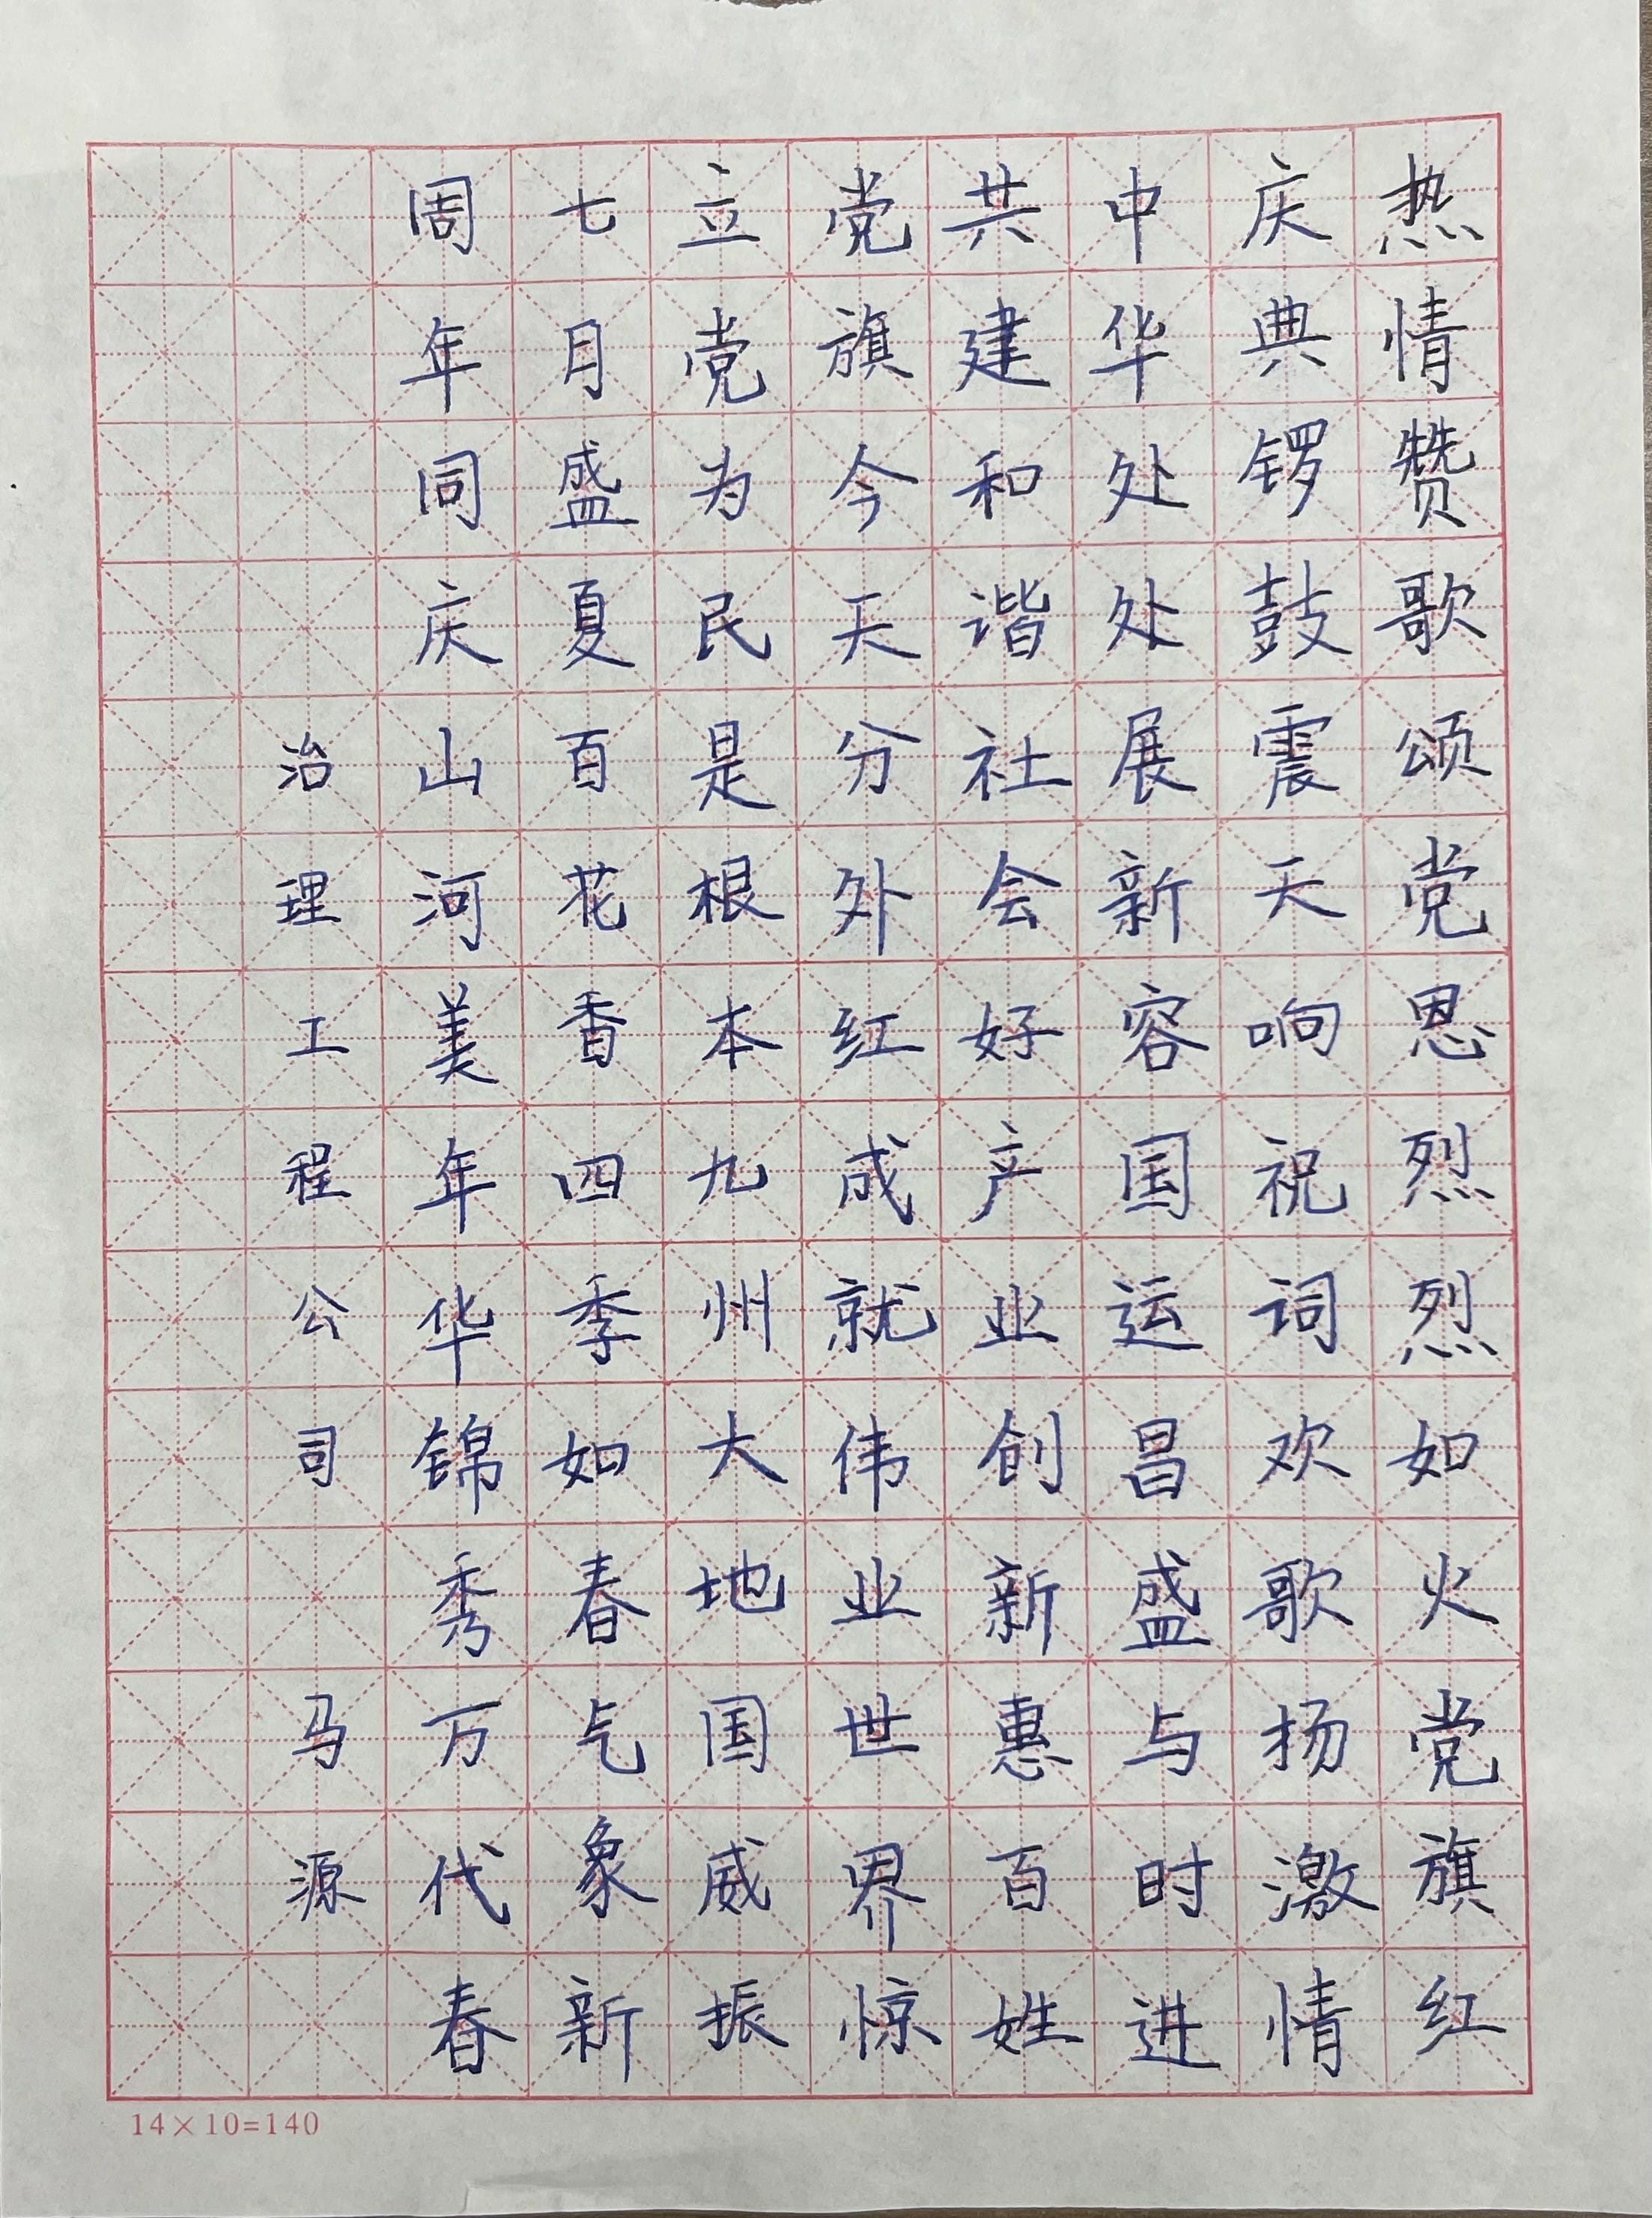 热情赞歌颂党恩烈烈如火党旗红
庆典锣鼓震天响祝词欢歌扬激情
中华处处展新容国运昌盛与时进
共建和谐社会好产业创新惠百姓
党旗今天分外红成就伟业世界惊
立党为民是根本九州大地国威振
七月盛夏百花香四季如春气象新
周年同庆山河美年华锦秀万代春
治理工程公司 马源
14×10=140